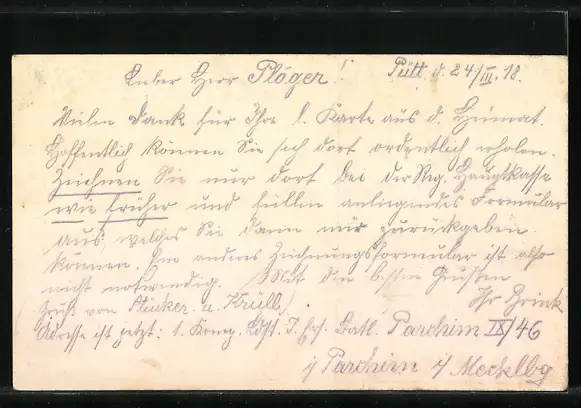 Lieber Herr Plöger! Pütt, d. 24/III. 18.
Vielen Dank für Ihre l. Karte aus d. Heimat.
Hoffentlich können Sie sich dort ordentlich erholen.
Zeichnen Sie nur dort bei der Reg. Hauptkasse
wie früher und füllen anliegendes Formular
aus, welches Sie dann mir zurückgeben
können. Ein anderes Zeichnungsformular ist also
nicht notwendig. Mit den besten Grüßen
(Gruß von Stücker u. Krull) Ihr
Adresse ist jetzt: 1. Komp. Ldst. I. Ers. Batl. Parchim IX/46
i/ Parchim i/ Mecklbg